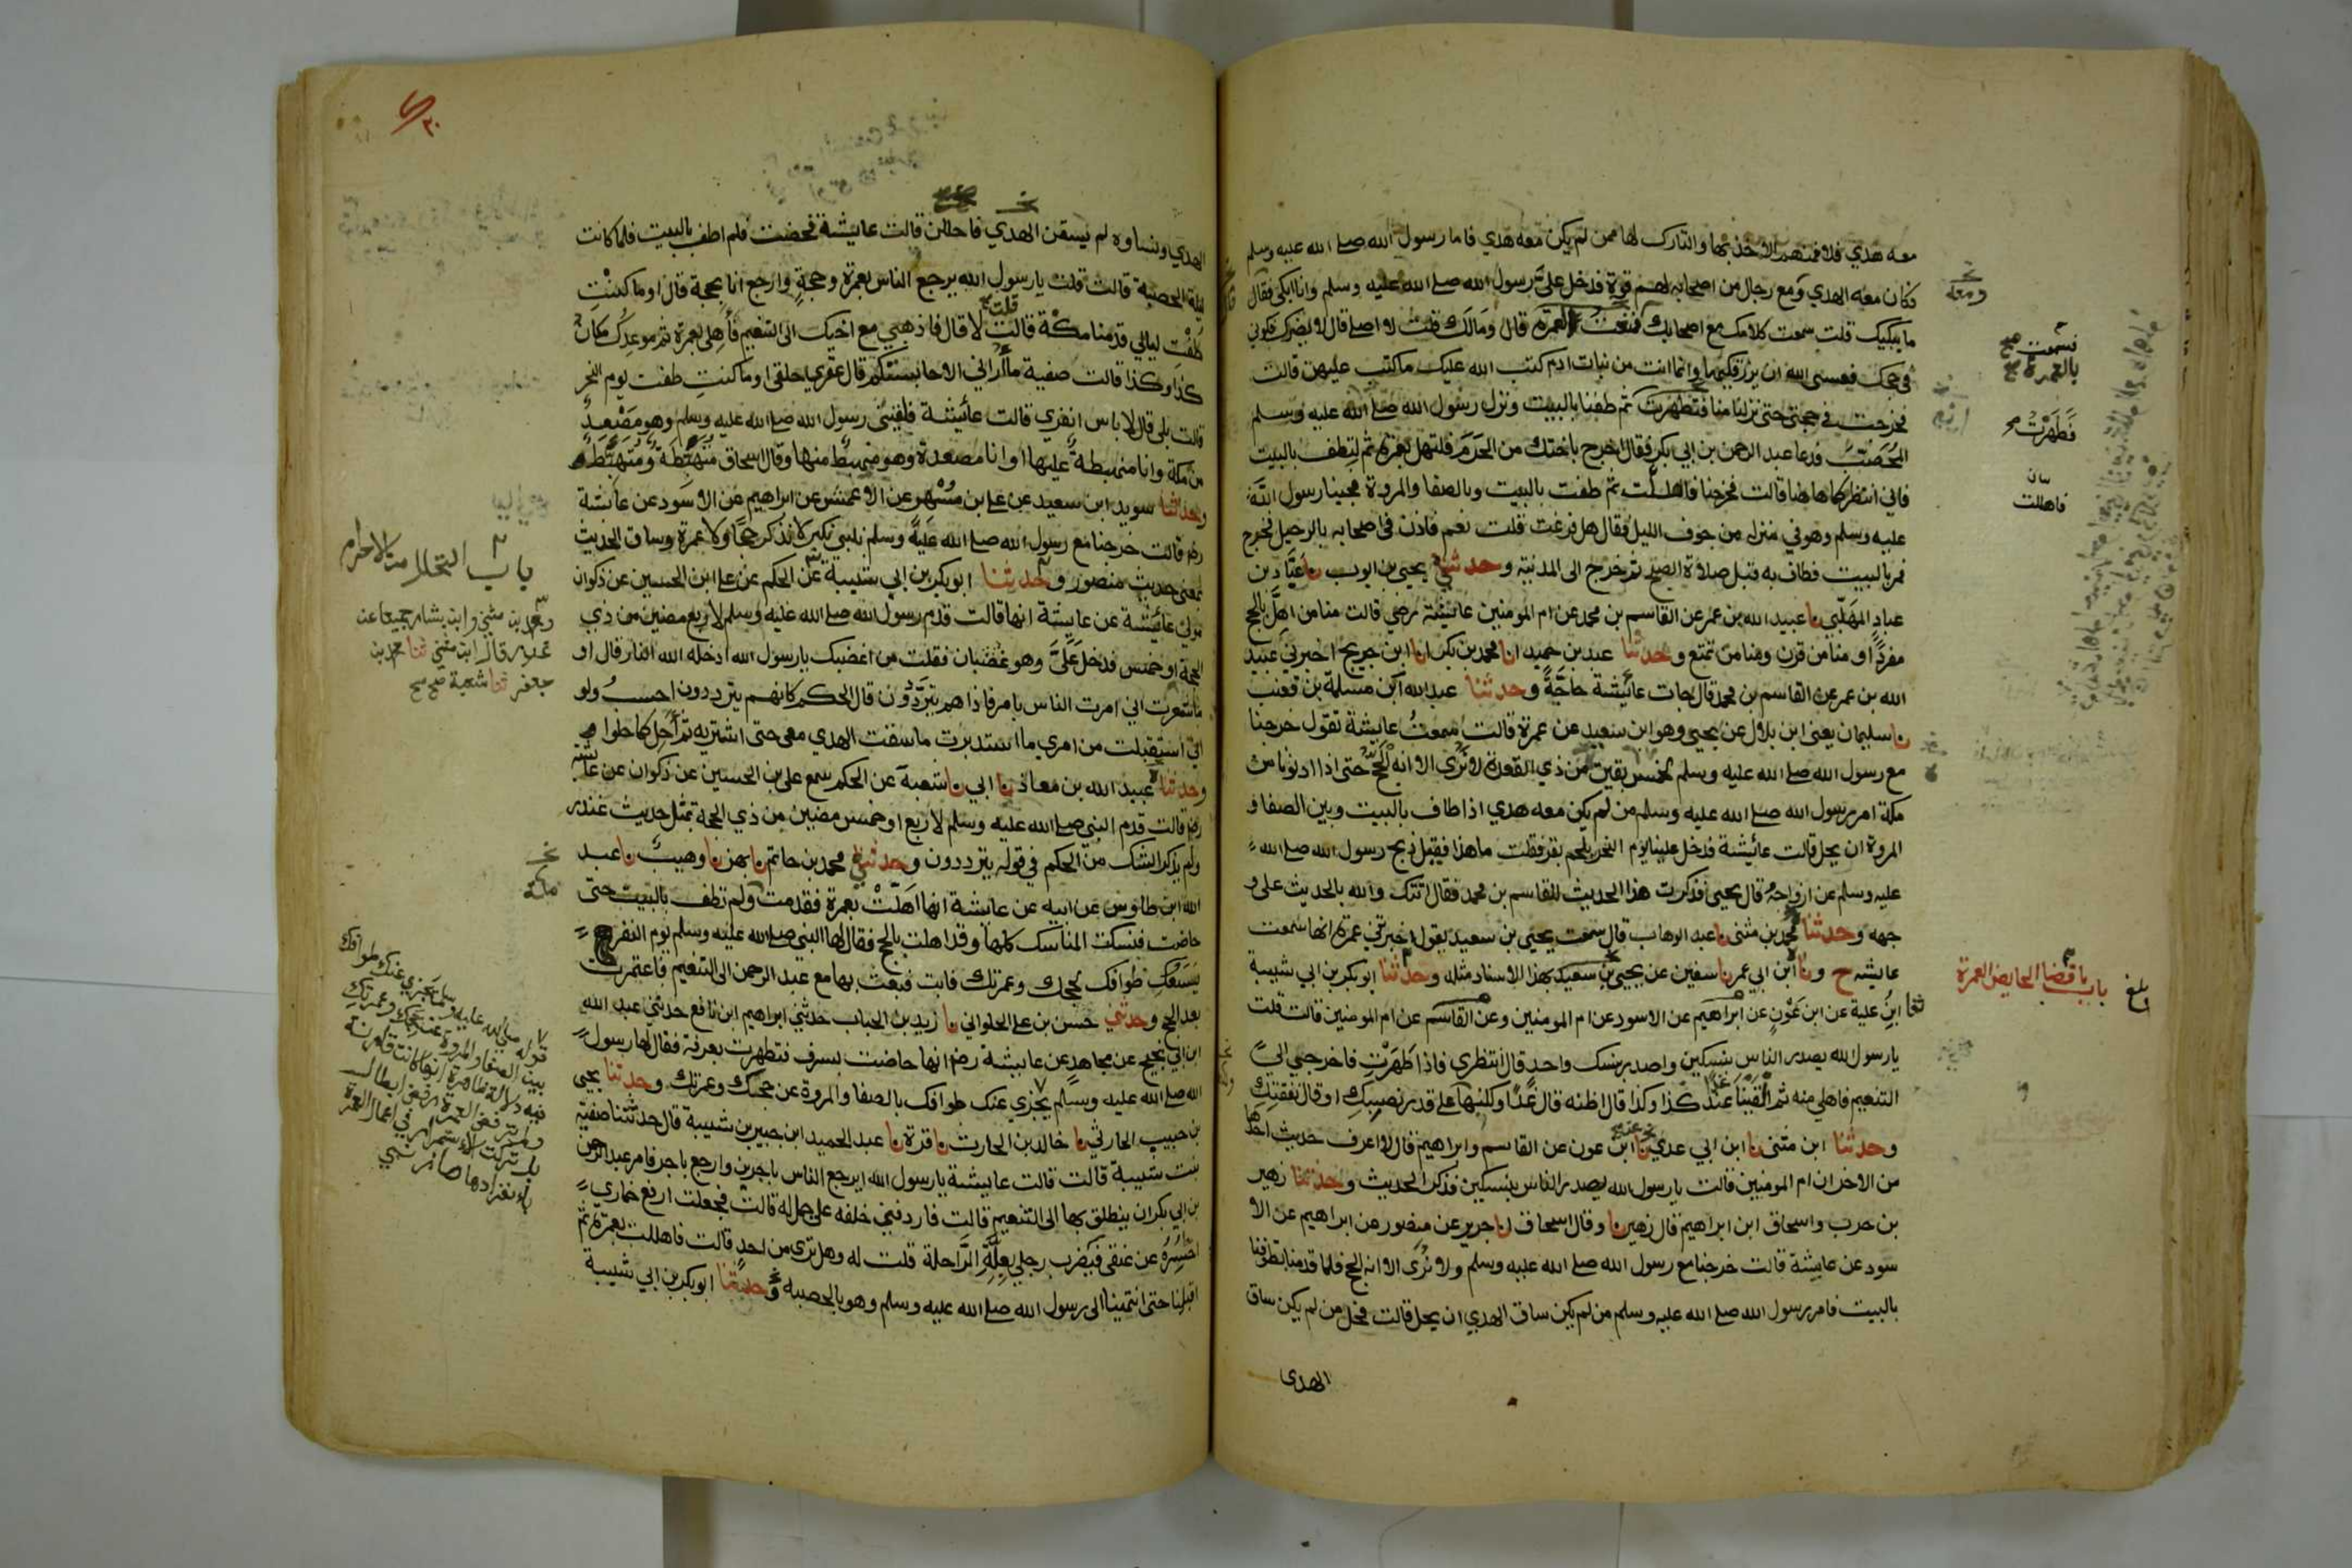 معه هدي فلا فمنهم الاخذ بها والتارك لها ممن لم يكن معه هدي فاما رسول الله صلے الله عليه وسلم
فكان معه الهدي ومع رجال من اصحابه لهم قوة فدخل علىَّ رسول الله صلے الله عليه وسلم وانا ابكي فقال
ما يبكيك قلت سمعت كلامك مع اصحابك فمنعت العمرة قال وَمَالَك قلت لا اصلے قال لا يضرك فكوني
في حجك فعسى الله ان يرزقكيها وانما انت من نبات ادم كتب الله عليك ماكتب عليهن قالت
فخرجت في حجتي حتى نزلنا منا فتطهرت ثم طفنا بالبيت ونزل رسول الله صلے الله عليه وسلم
المُحَصَّبَ فدعا عبد الرحمن بن ابي بكر فقال اخرج باختك من الحَرَمَ فلتهل بعمرة ثم لتطف بالبيت
فاني انتظركما هاهنا قالت فخرجنا فاهللت ثم طفت بالبيت وبالصفا والمروة فجينا رسول الله
عليه وسلم وهو في منزله من جوف الليل فقال هل فرغت قلت نعم فاذن في اصحابه بالرحيل فخرج
فمر بالبيت فطاف به قبل صلاة الصبح ثم خرج الى المدينة وحدثني يحيى بن ايوب نا عَبَّاد بن
عبادٍ المهَلّبي نا عبيد الله بن عمر عن القاسم بن محمد عن ام المومنين عائيشة رضي قالت منا من اهلَّ بالحج
مفردًا او منا من قرن ومنا من تمتع وحدثنا عبد بن حميد انا محمد بن بكر انا ابن جريج اخبرني عبيد
الله بن عمر عن القاسم بن محمد قال جات عائيشة حاجَّةً وحدثنا عبد الله ابن مسلمة بن قعنب
نا سليمان يعنى ابن بلال عن يحيى وهو ابن سعيد عن عمرة قالت سمعتُ عايشة تقول خرجنا
مع رسول الله صلے الله عليه وسلم لخمس بقين من ذي القعدة لا نُرَى الا انه الحج حتى اذا دنونا من
مكة امر رسول الله صلے الله عليه وسلم من لم يكن معه هدي اذا طاف بالبيت وبين الصفا و
المروة ان يحل قالت عائيشة فدخل علينا يوم النحر بلحم بقر فقلت ما هذا فقيل ذبح رسول الله صلے الله
عليه وسلم عن ازواجه قال يحيى فذكرت هذا الحديث للقاسم بن محمد فقال اتتك والله بالحديث على و
جهه وحدثنا محمد بن مثنى نا عبد الوهاب قال سمعت يحيى بن سعيد يقول اخبرتني عمرة انها سمعت
عايشه ح ونا ابن ابي عمر نا سفين عن يحيى بن سعيد بهذا الاسناد مثله وحدثنا ابو بكر بن ابي شيبة
ثنا ابن علية عن ابن عَوْنٍ عن ابراهيم عن الاسود عن ام المومنين وعن القاسم عن ام المومنين قالت قلت
يارسول الله يصدر الناس بنسكين واصدر بنسك واحد قال انتظري فاذا طَهَرْتِ فاخرجي الى
التنعيم فاهلي منه ثم القينا عند كذا وكذا قال اظنه قال غدًا وكلنها على قدر نصيبك او قال نفقتك
وحدثنا ابن مثنى نا ابن ابي عدي نا ابن عون عن القاسم وابراهيم قال لا اعرف حديث احدهما
من الاخر ان ام المومنين قالت يارسول الله يصدر الناس بنسكين فذكر الحديث وحدثنا زهير
بن حرب واسحاق ابن ابراهيم قال زهير نا وقال اسحاق انا جرير عن منصور عن ابراهيم عن الا
سود عن عايشة قالت خرجنا مع رسول الله صلے الله عليه وسلم ولا نُرَى الا انه الحج فلما قدمنا تطوفنا
بالبيت فامر رسول الله صلے الله عليه وسلم من لم يكن ساق الهدي ان يحل قالت فحل من لم يكن ساق
الهدى
ومعه
فسمعت صح
بالعمرة صح
فَطَهَرْتُ
فاهللت
باب قضا الحايض العمرة
بلغ
الهدي ونساوه لم يسقن الهدي فاحللن قالت عايشة فحضت فلم اطف بالبيت فلما كانت
ليلة الحصبة قالت قلت يارسول الله يرجع الناس بعمرة وحجةٍ وارجع انا بحجة قال اوما كنتِ
طُفْت ليالي قدمنا مكة قالت قلت لا قال فاذهبي مع اخيك الى التنعيم فأهلي بعمرة ثم موعدك مكان
كذا وكذا قالت صفية ما أُراني الا حابستكم قال عقري حلقى اوما كنتِ طفت يوم النحر
قالت بلى قال لا باس انفري قالت عائيشة فلقيني رسول الله صلے الله عليه وسلم وهو مُصْعِدٌ
من مكة وانا منهبطةً عليها او انا مصعدة وهو منهبط منها وقال اسحاق مُتَهَبِّطَةٌ ومُتَهَبِّطٌ
وحدثنا سويد ابن سعيد عن علے ابن مُسْهر عن الاعمش عن ابراهيم عن الاسود عن عايشة
رضي قالت خرجنا مع رسول الله صلے الله عليه وسلم نلبي لا نذكر حجا ولا عمرة وساق الحديث
بمعنى حديث منصور وحدثنا ابو بكر بن ابي شيبة عن الحكم عن علے ابن الحسين عن ذكوان
مولى عائشة عن عايشة انها قالت قدم رسول الله صلے الله عليه وسلم لاربع مضين من ذي
الحجة او خمس فدخل علىَّ وهو غضبان فقلت من اغضبك يارسول الله ادخله الله النار قال او
ما شعرت اني امرت الناس بامر فاذا هم يتردَّدُون قال الحكم كانهم يترددون احسبُ ولو
اني استقبلت من امري ما استدبرت ما سقت الهدي معى حتى اشتريه ثم أحل كما حلوا
وحدثنا عبيد الله بن معاذ نا ابي نا شعبة عن الحكم سمع على بن الحسين عن ذكوان عن عائشة
رضي قالت قدم النبي صلے الله عليه وسلم لاربع او خمس مضين من ذي الحجة بمثل حديث غندر
ولم يذكر الشك من الحكم في قوله يترددون وحدثني محمد بن حاتم نا بهز نا وهيب نا عبد
الله ابن طاوس عن ابيه عن عايشة انها اَهَلَّتْ بعمرة فقدمت ولم تطف بالبيت حتى
حاضت فنسكت المناسك كلها وقد اهلت بالحج فقال لها النبي صلے الله عليه وسلم يوم النفر
يَسَعُكِ طوافك لحجك وعمرتك فابت فبعث بها مع عبد الرحمن الى التنعيم فاعتمرت
بعد الحج وحدثني حسن بن علے الحلواني نا زيد بن الحباب حدثني ابراهيم ابن نافع حدثني عبد الله
ابن ابي نجيح عن مجاهد عن عايشة رضي انها حاضت بسرف فتطهرت بعرفة فقال لها رسول
الله صلے الله عليه وسلم يجزي عنك طوافك بالصفا والمروة عن حجك وعمرتك وحدثنا يحيى
بن حبيب الحارثي نا خالد بن الحارث نا قرة نا عبد الحميد ابن جبير بن شيبة قال حدثتنا صفية
بنت شيبة قالت قالت عايشة يارسول الله ايرجع الناس باجرين وارجع باجر فامر عبد الرحمن
بن ابي بكر ان ينطلق بها الى التنعيم قالت فاردفني خلفه على جمل له قالت فجعلت ارفع خماري
احسُرُهُ عن عنقى فيضرب رجلي بعلة الراحلة قلت له وهل ترى من احدٍ قالت فاهللت بعمرة ثم
اقبلنا حتى انتهينا الى رسول الله صلے الله عليه وسلم وهو بالحصبه وحدثنا ابو بكر بن ابي شيبة
باب التحلل من الاحرام
ومحمد بن مثنى وابن بشار جميعا عن
غندر قال ابن مثنى ثنا محمد بن
جعفر ثنا شعبة صح صح
مكة
قوله صلى الله عليه وسلم يجزي عنك طوافك
بين الصفا والمروة عن حجك وعمرتك
فيه دلالة ظاهرة انها كانت قارنة
ولم ترفض العمرة رفض ابطال
بل تركت الاستمرار في اعمال العمرة
بانفرادها